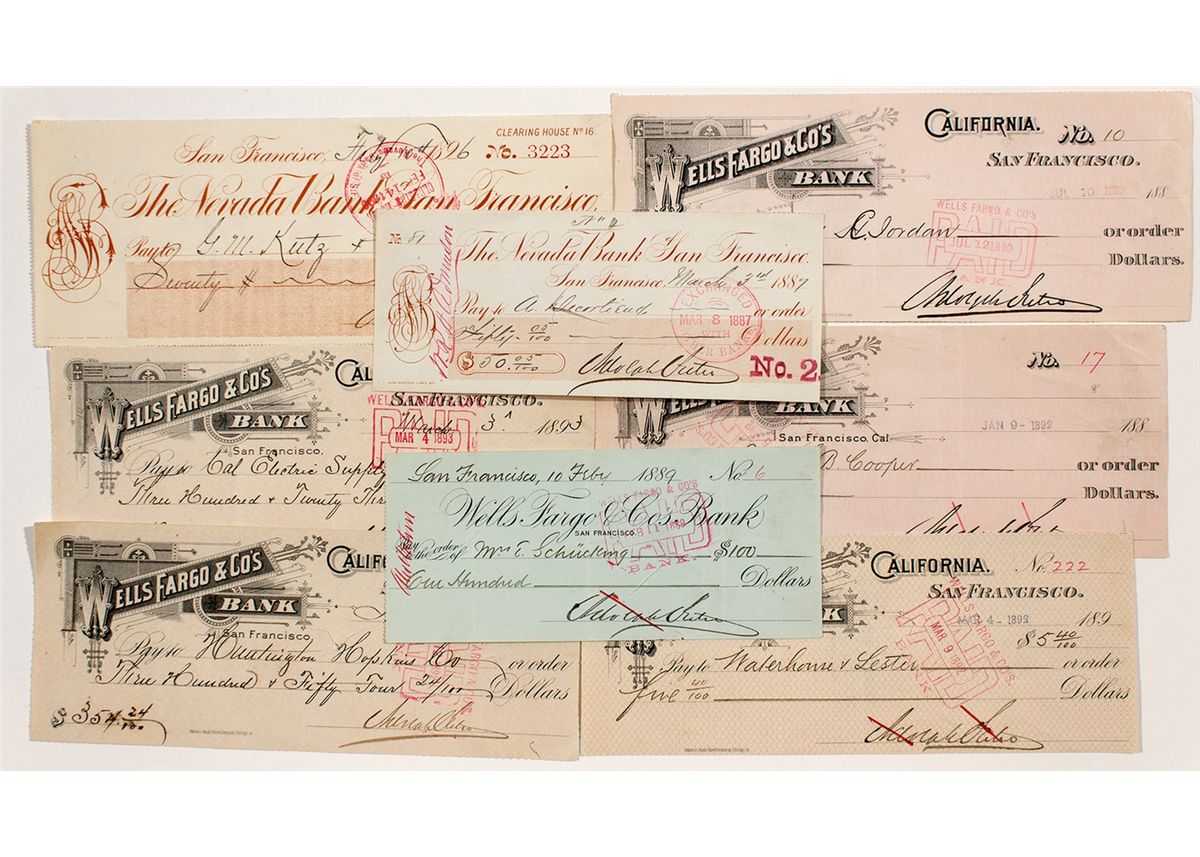 CLEARING HOUSE No 16.
San Francisco, Feby 1896 No. 3223
The Nevada Bank San Francisco.
Pay to G. M. Kutz +
Seventy
WELLS FARGO & CO'S
BANK
CALIFORNIA. No. 10
SAN FRANCISCO.
JUL 10 1890 188
WELLS FARGO & CO'S
PAID
JUL 12 1890
Jordan or order
Dollars.
Adolph Sutro
No. 81
The Nevada Bank San Francisco.
San Francisco, March 2nd 1887
Pay to A. or order
Fifty 05/100 Dollars
$50.05/100
EXCHANGED
MAR 8 1887
WITH
OTHER BANKS
Adolph Sutro
No. 2
WELLS FARGO & CO'S
BANK
San Francisco,
CAL
SAN FRANCISCO.
March 3 1893
WELLS FARGO & CO'S
PAID
MAR 4 1893
Pay to Cal Electric Supply
Three Hundred + Twenty
WELLS FARGO
BANK
San Francisco, Cal
No. 17
JAN 9 - 1892 188
B Cooper or order
Dollars.
San Francisco, 10 Feby 1889 No 6
Wells Fargo & Cos. Bank
SAN FRANCISCO.
Pay to the order of Mrs E. Schücking $100
One Hundred Dollars
WELLS FARGO & CO'S
PAID
BANK.
Adolph Sutro
WELLS FARGO & CO'S
BANK
San Francisco,
CALIF
Pay to Huntington Hopkins Co or order
Three Hundred + Fifty Four 24/100 Dollars
$354.24/100
Adolph Sutro
CALIFORNIA. No. 222
SAN FRANCISCO.
MAR 4 - 1892 189
$5 40/100
WELLS FARGO & CO'S
PAID
MAR 9 1892
BANK
Pay to Waterhouse + Lester or order
five 40/100 Dollars
Adolph Sutro